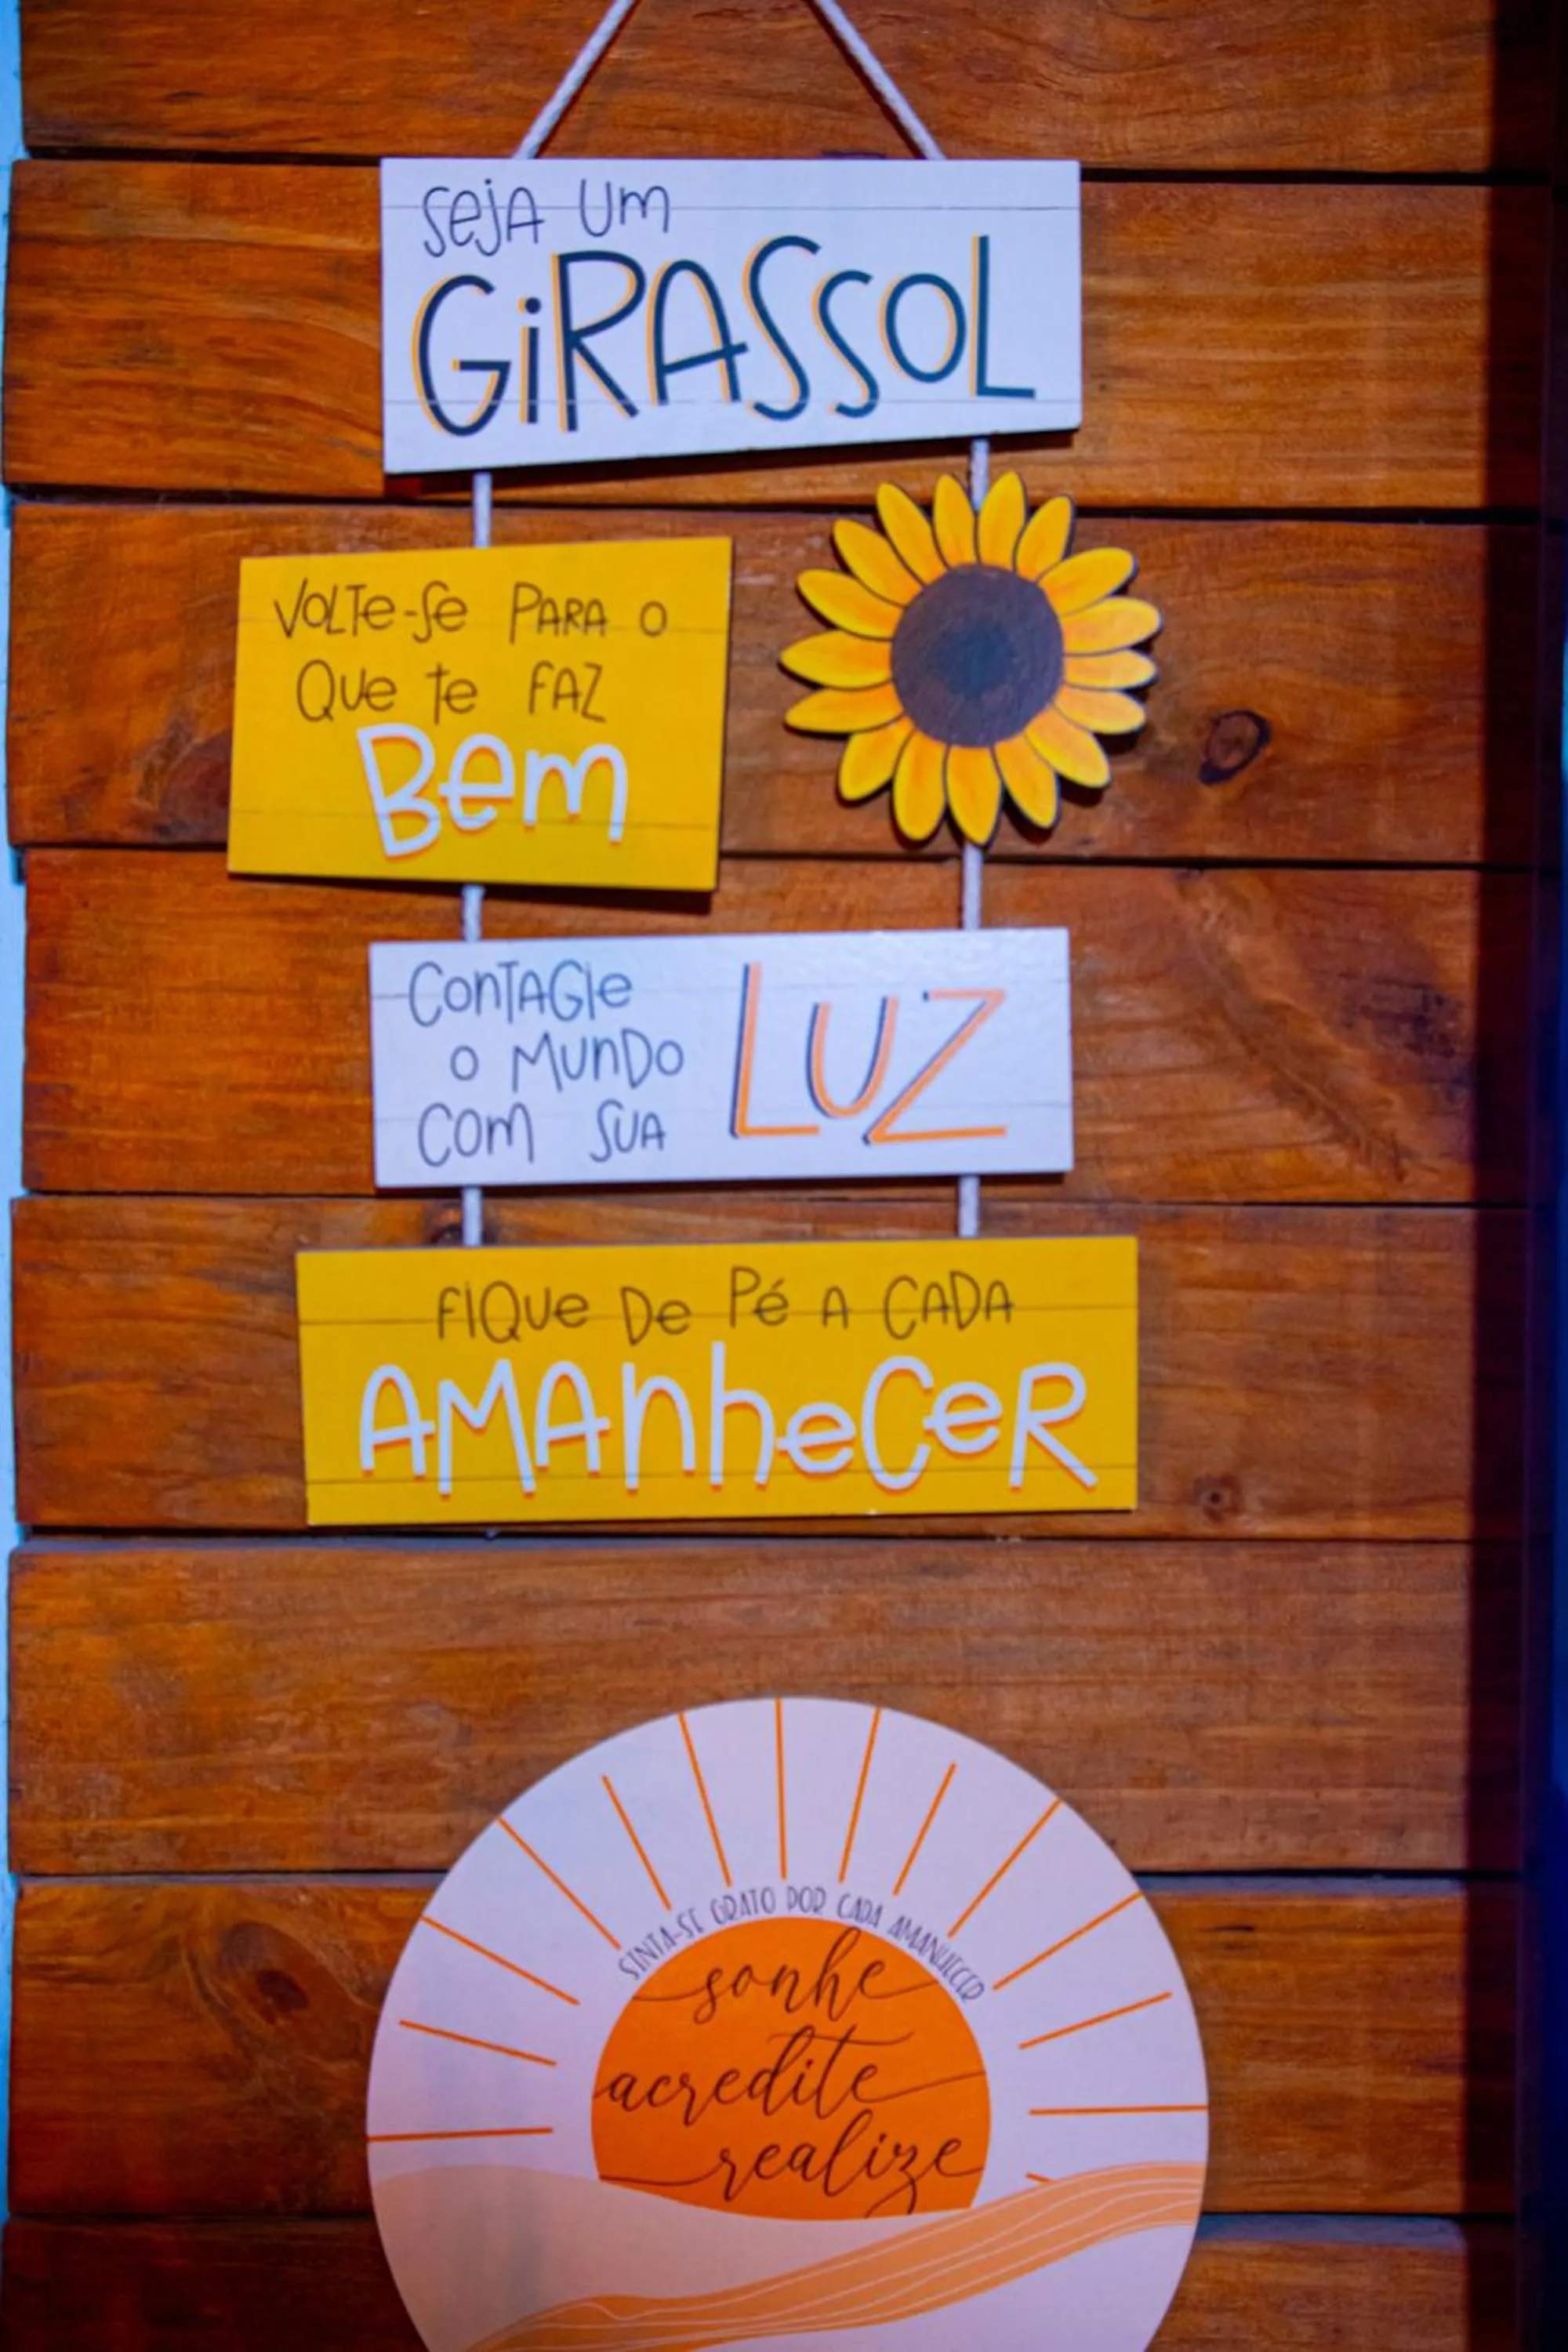 Seja um
GIRASSOL
VOLTE-SE PARA O
QUE TE FAZ
BEM
CONTAGIE
O MUNDO
COM SUA
LUZ
FIQUE DE PÉ A CADA
AMANHECER
SINTA-SE GRATO POR CADA AMANHECER
sonhe
acredite
realize